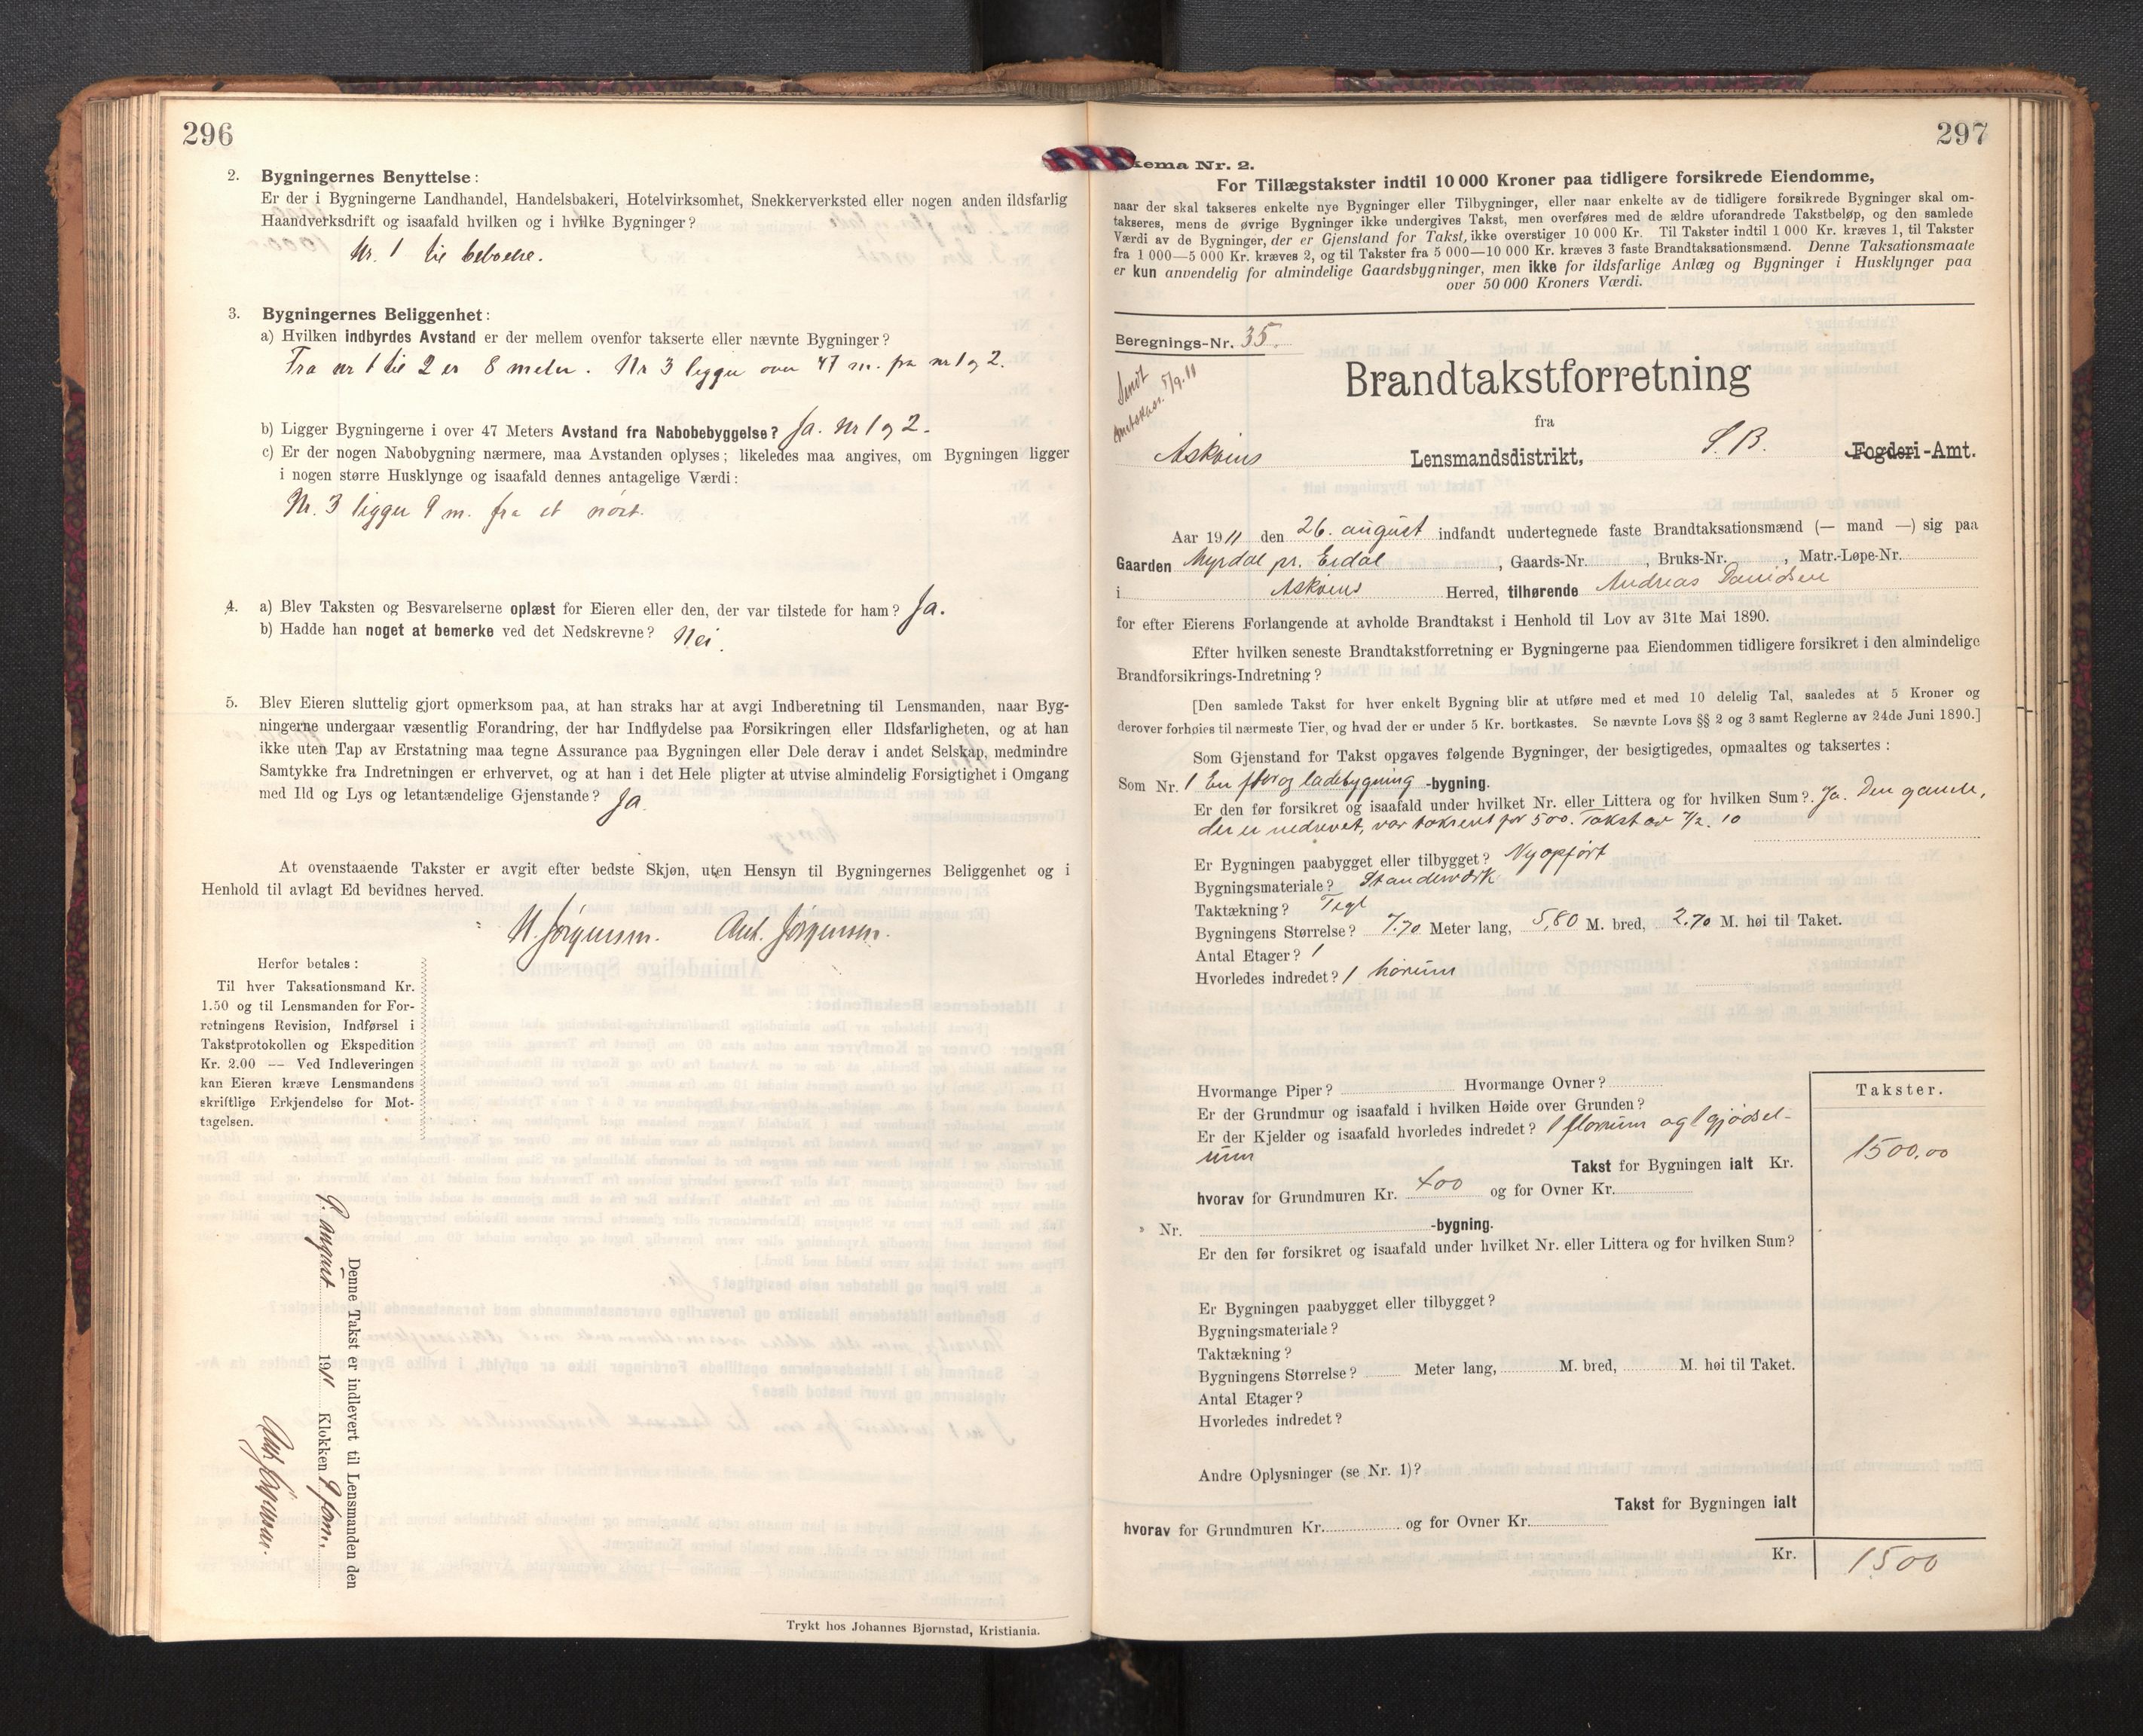 296
2. Bygningernes Benyttelse:
Er der i Bygningerne Landhandel, Handelsbakeri, Hotelvirksomhet, Snekkerverksted eller nogen anden ildsfarlig
Haandverksdrift og isaafald hvilken og i hvilke Bygninger?
Nr. 1 til beboelse.
3. Bygningernes Beliggenhet:
a) Hvilken indbyrdes Avstand er der mellem ovenfor takserte eller nævnte Bygninger?
Fra nr 1 til 2 er 8 meter. Nr 3 ligger over 47 m. fra nr 1 og 2.
b) Ligger Bygningerne i over 47 Meters Avstand fra Nabobebyggelse? Ja. Nr 1 og 2.
c) Er der nogen Nabobygning nærmere, maa Avstanden oplyses; likeledes maa angives, om Bygningen ligger
i nogen større Husklynge og isaafald dennes antagelige Værdi:
Nr. 3 ligger 9 m. fra et nöst.
4. a) Blev Taksten og Besvarelserne oplæst for Eieren eller den, der var tilstede for ham? Ja.
b) Hadde han noget at bemerke ved det Nedskrevne? Nei.
5. Blev Eieren sluttelig gjort opmerksom paa, at han straks har at avgi Indberetning til Lensmanden, naar Byg-
ningerne undergaar væsentlig Forandring, der har Indflydelse paa Forsikringen eller Ildsfarligheten, og at han
ikke uten Tap av Erstatning maa tegne Assurance paa Bygningen eller Dele derav i andet Selskap, medmindre
Samtykke fra Indretningen er erhvervet, og at han i det Hele pligter at utvise almindelig Forsigtighet i Omgang
med Ild og Lys og letantændelige Gjenstande? Ja.
At ovenstaaende Takster er avgit efter bedste Skjøn, uten Hensyn til Bygningernes Beliggenhet og i
Henhold til avlagt Ed bevidnes herved.
N. Jörgensen. Ant. Jörgensen.
Herfor betales:
Til hver Taksationsmand Kr.
1.50 og til Lensmanden for For-
retningens Revision, Indførsel i
Takstprotokollen og Ekspedition
Kr. 2.00 — Ved Indleveringen
kan Eieren kræve Lensmandens
skriftlige Erkjendelse for Mot-
tagelsen.
Denne Takst er indlevert til Lensmanden den
9. august 1911 Klokken 9 form.
Ant. Jörgensen.
Trykt hos Johannes Bjørnstad, Kristiania.
297
kema Nr. 2.
For Tillægstakster indtil 10 000 Kroner paa tidligere forsikrede Eiendomme,
naar der skal takseres enkelte nye Bygninger eller Tilbygninger, eller naar enkelte av de tidligere forsikrede Bygninger skal om-
takseres, mens de øvrige Bygninger ikke undergives Takst, men overføres med de ældre uforandrede Takstbeløp, og den samlede
Værdi av de Bygninger, der er Gjenstand for Takst, ikke overstiger 10 000 Kr. Til Takster indtil 1 000 Kr. kræves 1, til Takster
fra 1 000—5 000 Kr. kræves 2, og til Takster fra 5 000—10 000 Kr. kræves 3 faste Brandtaksationsmænd. Denne Taksationsmaate
er kun anvendelig for almindelige Gaardsbygninger, men ikke for ildsfarlige Anlæg og Bygninger i Husklynger paa
over 50 000 Kroners Værdi.
Beregnings-Nr. 35.
Sendt
Amtskas. 5/9.11
Brandtakstforretning
fra
Askøens Lensmandsdistrikt, S. B. Fogderi-Amt.
Aar 1911 den 26. august indfandt undertegnede faste Brandtaksationsmænd (— mand —) sig paa
Gaarden Myrdal pr. Erdal, Gaards-Nr. , Bruks-Nr. , Matr.-Løpe-Nr.
i Askøens Herred, tilhørende Andreas Davidsen
for efter Eierens Forlangende at avholde Brandtakst i Henhold til Lov av 31te Mai 1890.
Efter hvilken seneste Brandtakstforretning er Bygningerne paa Eiendommen tidligere forsikret i den almindelige
Brandforsikrings-Indretning?
[Den samlede Takst for hver enkelt Bygning blir at utføre med et med 10 delelig Tal, saaledes at 5 Kroner og
derover forhøies til nærmeste Tier, og hvad der er under 5 Kr. bortkastes. Se nævnte Lovs §§ 2 og 3 samt Reglerne av 24de Juni 1890.]
Som Gjenstand for Takst opgaves følgende Bygninger, der besigtigedes, opmaaltes og taksertes:
Som Nr. 1 En flor og ladebygning -bygning.
Er den før forsikret og isaafald under hvilket Nr. eller Littera og for hvilken Sum? Ja. Den gamle,
der er nedrevet, var taksert for 500. Takst av 7/2. 10
Er Bygningen paabygget eller tilbygget? Nyopfört
Bygningsmateriale? Standerværk
Taktækning? Tegl
Bygningens Størrelse? 7.70 Meter lang, 5,80 M. bred, 2.70 M. høi til Taket.
Antal Etager? 1
Hvorledes indredet? 1 hörum
Hvormange Piper? Hvormange Ovner?
Er der Grundmur og isaafald i hvilken Høide over Grunden?
Er der Kjelder og isaafald hvorledes indredet? 1 florrum og 1 gjödsel-
rum
Takst for Bygningen ialt Kr.
hvorav for Grundmuren Kr. 400 og for Ovner Kr.
Takster.
1500.00
» Nr. -bygning.
Er den før forsikret og isaafald under hvilket Nr. eller Littera og for hvilken Sum?
Er Bygningen paabygget eller tilbygget?
Bygningsmateriale?
Taktækning?
Bygningens Størrelse? Meter lang, M. bred, M. høi til Taket.
Antal Etager?
Hvorledes indredet?
Andre Oplysninger (se Nr. 1)?
Takst for Bygningen ialt
hvorav for Grundmuren Kr. og for Ovner Kr.
Kr. 1500